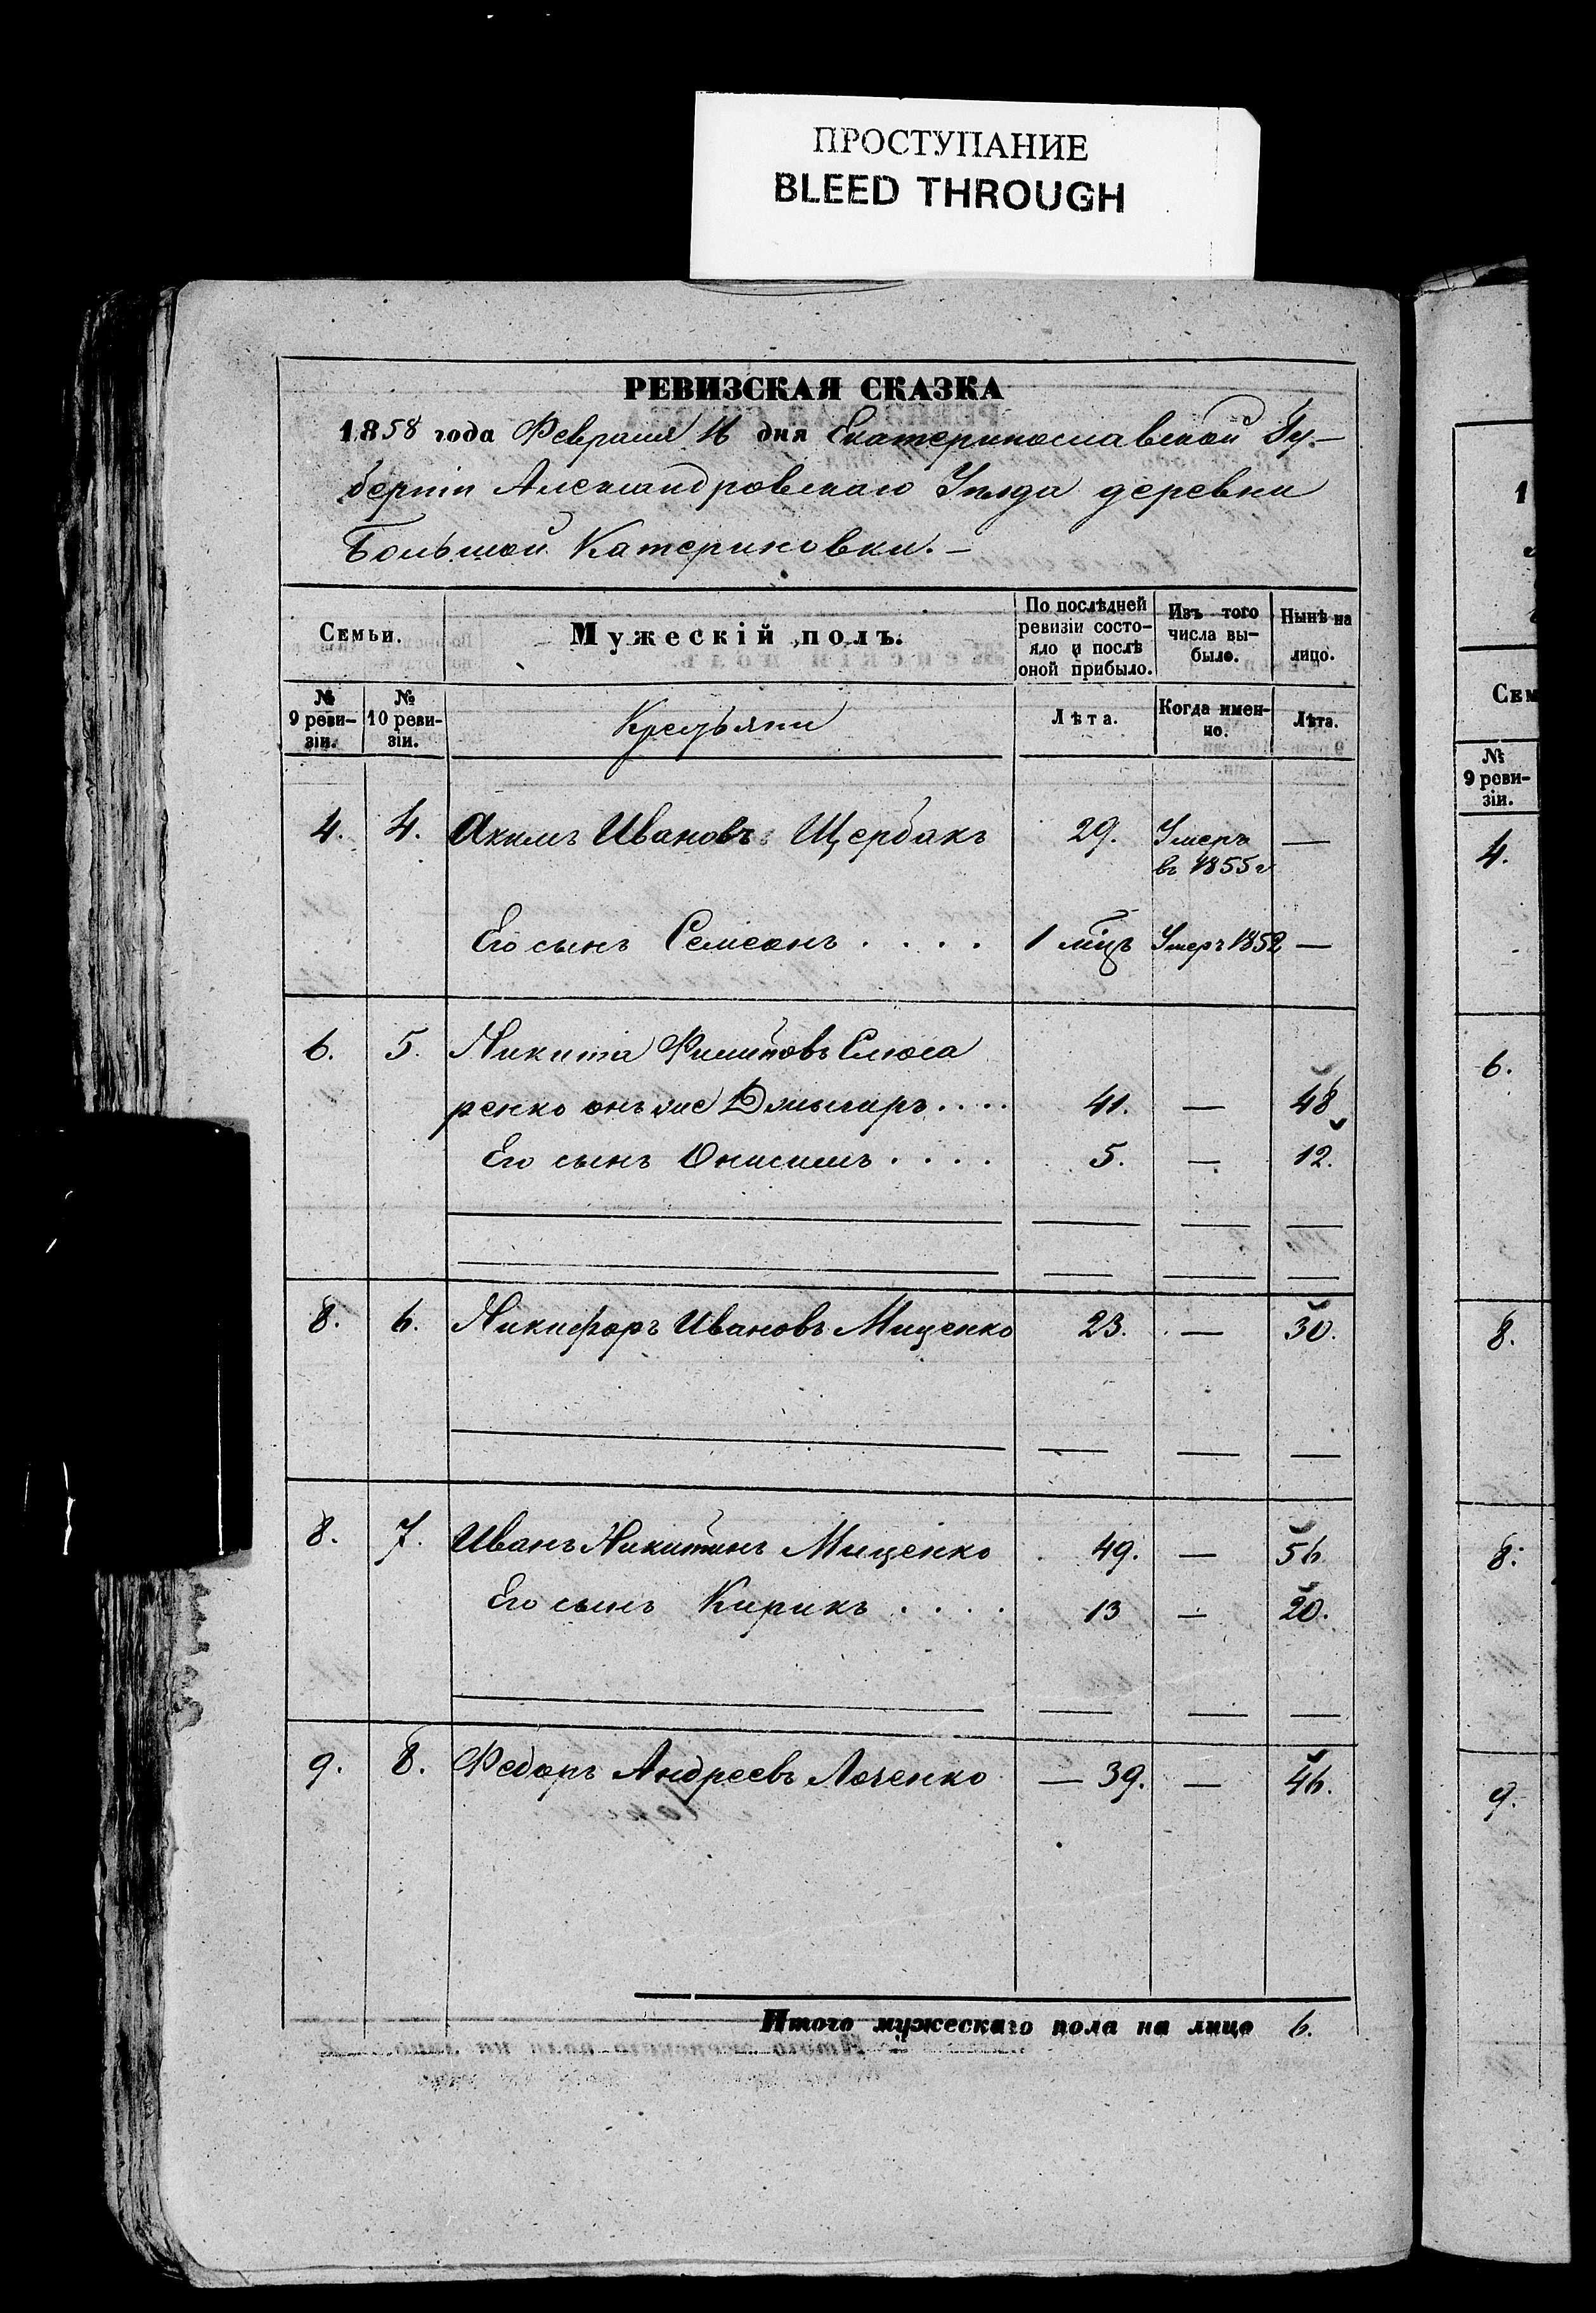 ПРОСТУПАНИЕ
BLEED THROUGH
РЕВИЗСКАЯ СКАЗКА
1858 года Февраля 16 дня Екатеринославской Гу-
берніи Александровскаго Уѣзда деревни
Большой Катериновки.
Семьи.
Мужескій полъ.
По послѣдней ревизіи состо-
яло и послѣ оной прибыло.
Изъ того числа вы-
было.
Нынѣ на лицо.
№ 9 реви-
зіи.
№ 10 реви-
зіи.
Крестьяни
Лѣта.
Когда имен-
но.
Лѣта.
4. 4. Акимъ Ивановъ Щербакъ 29. Умеръ —
въ 1855 г
Его сынъ Семеонъ . . . . 1 мцъ Умеръ 1852 —
6. 5. Никита Филиповъ Слюса
ренко онъ же 41. — 48
Его сынъ Онисимъ . . . . 5. — 12.
8. 6. Никифоръ Ивановъ Мищенко 23. — 30.
8. 7. Иванъ Никитинъ Мищенко 49. — 56
Его сынъ Кирикъ . . . . 13 — 20.
9. 8. Федоръ Андреевъ — 39. — 46.
Итого мужескаго пола на лицо 6.
1
Сем
№
9 реви-
зіи.
4.
6.
8.
8.
9.